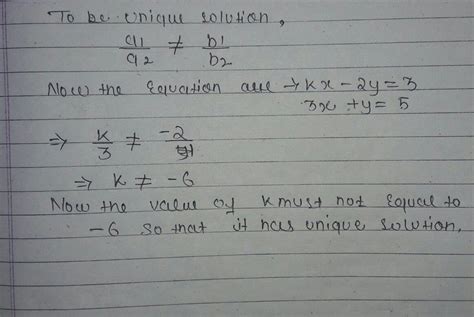 To be unique solution,
a1/a2 ≠ b1/b2
Now the Equation are → kx - 2y = 3
3x + y = 5
⇒ k/3 ≠ -2/1
⇒ k ≠ -6
Now the value of k must not Equal to
-6 so that it has unique solution.